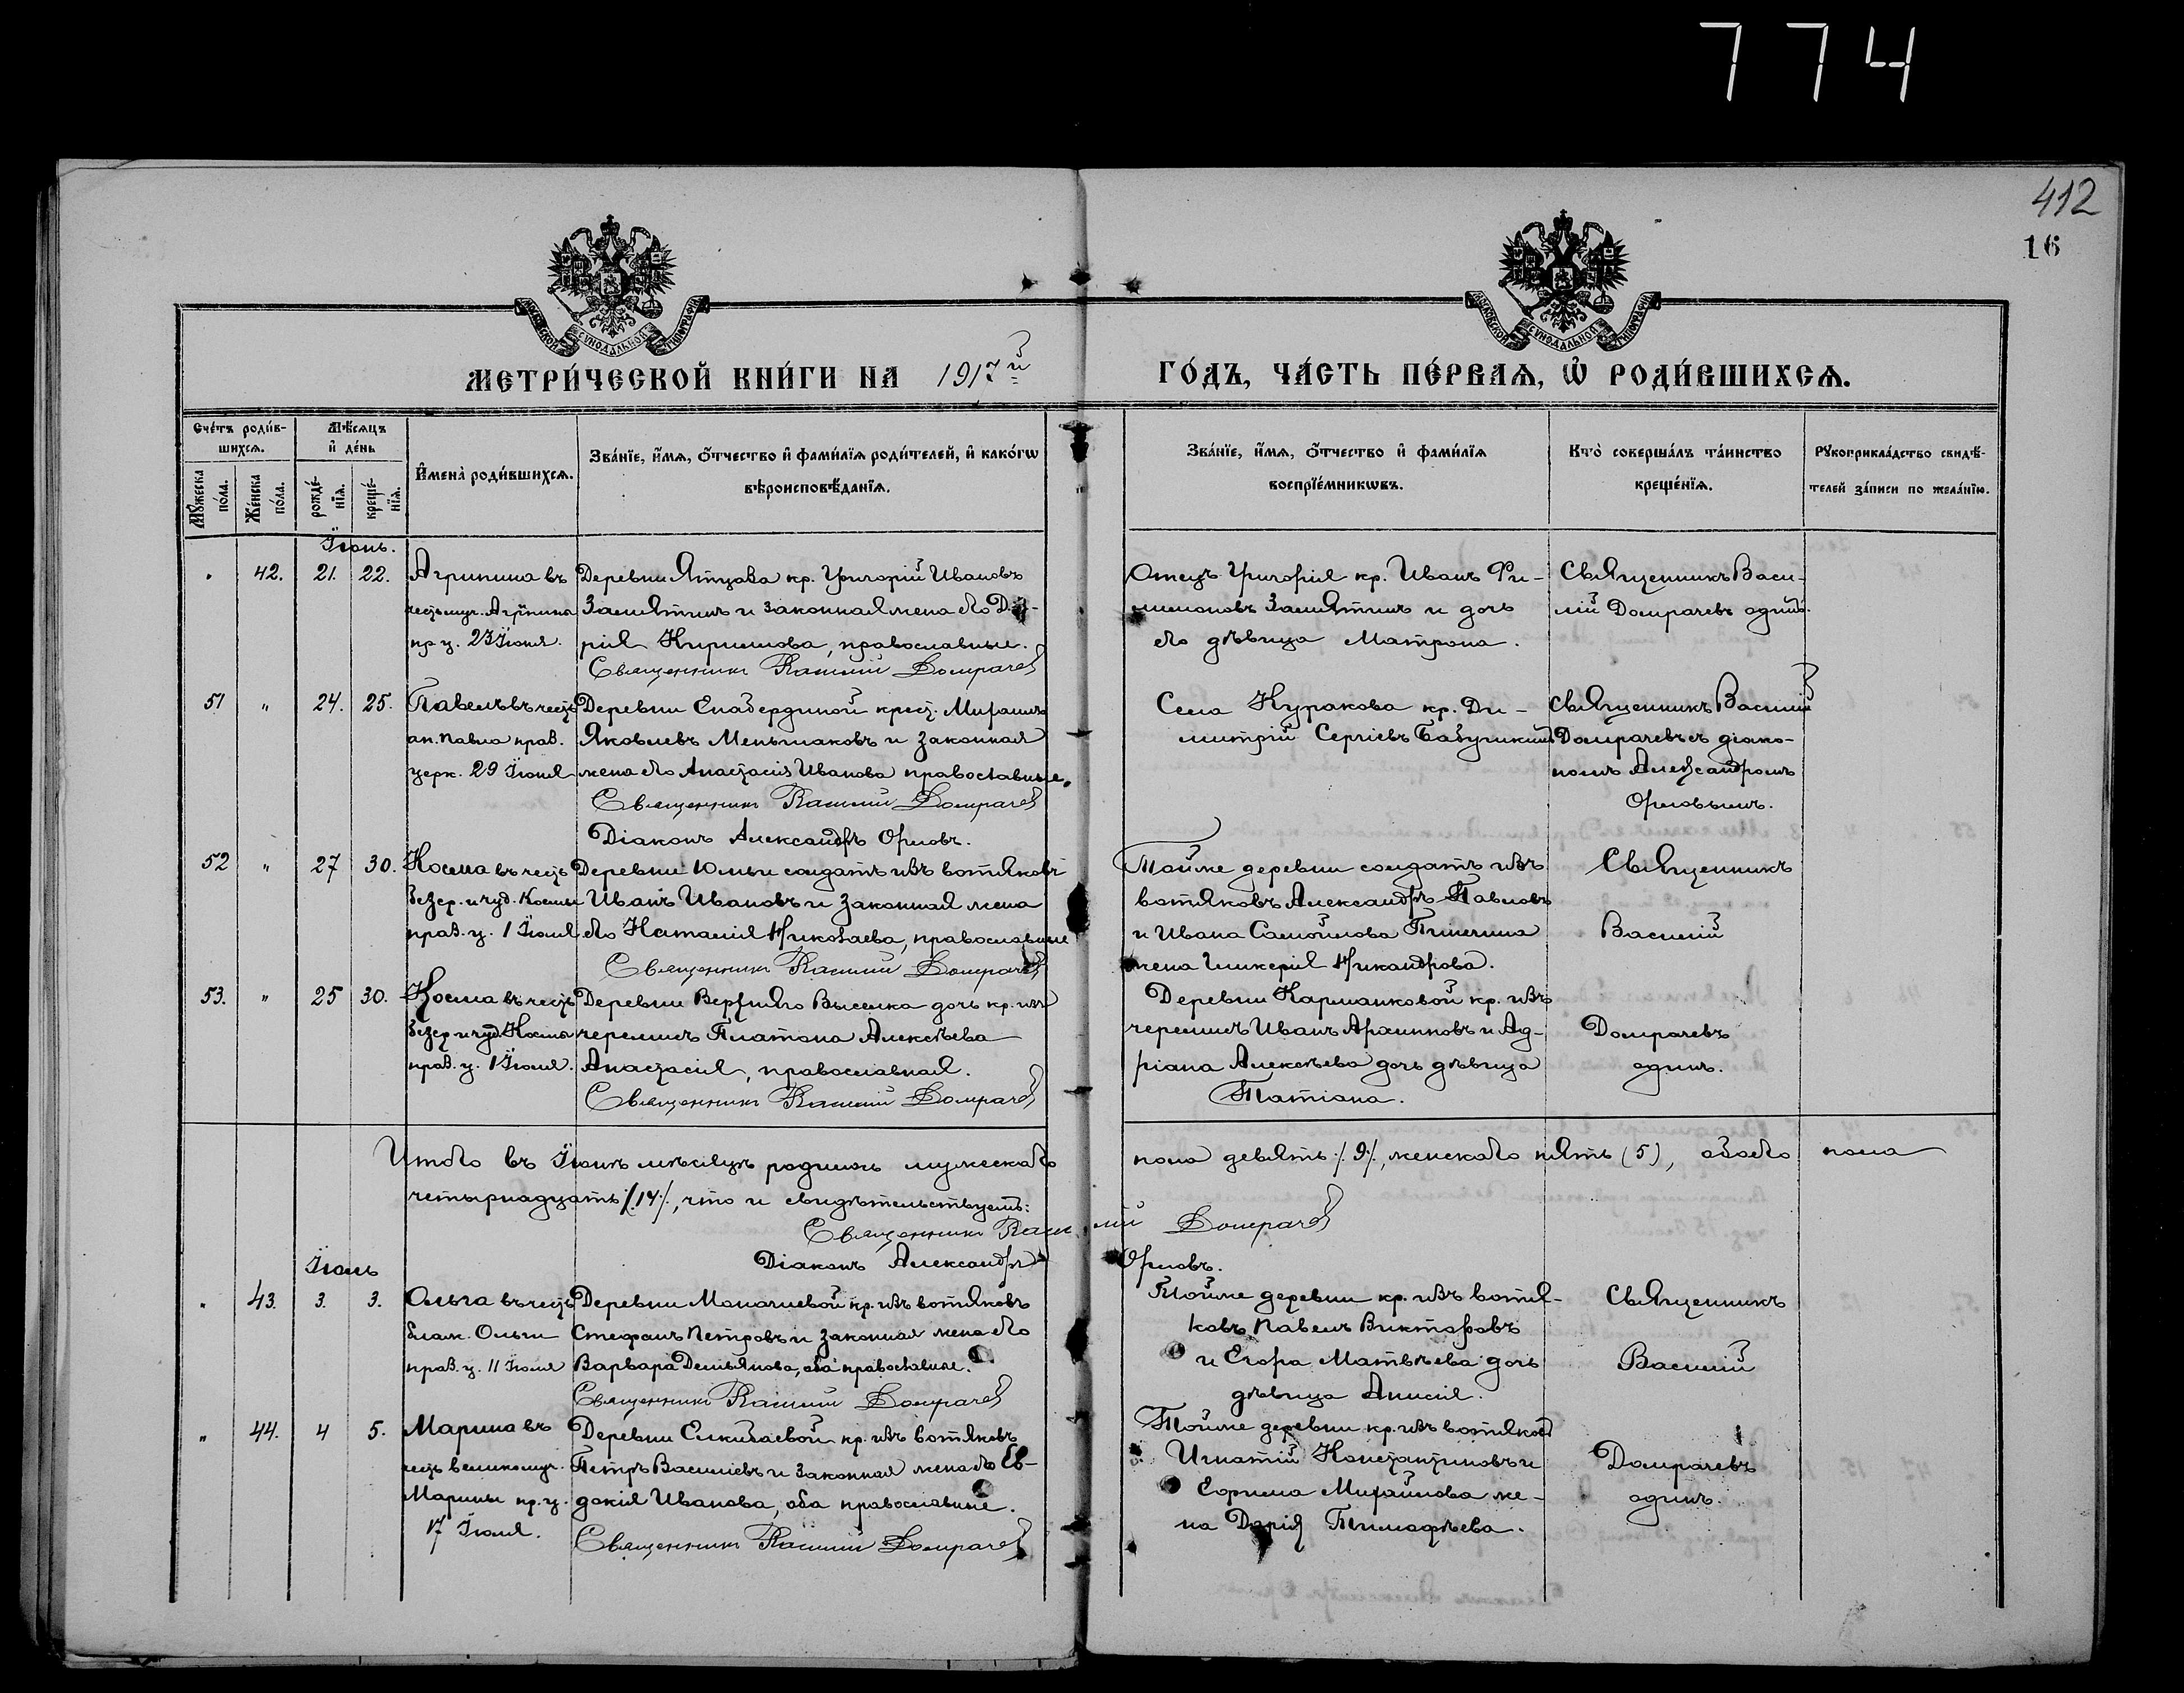 774
412
16
МОСКОВСКОЙ СѴНОДАЛЬНОЙ ТИПОГРАФІИ
МОСКОВСКОЙ СѴНОДАЛЬНОЙ ТИПОГРАФІИ
МЕТРИ́ЧЕСКОЙ КНИ́ГИ НА 1917й
ГО́ДЪ, ЧА́СТЬ ПЕ́РВАѦ, Ѡ҆ РОДИ́ВШИХСѦ.
Сче́тъ роди́в-
шихсѧ.
Мꙋжеска по́ла.
Же́нска по́ла.
Мѣ́сѧцъ
и҆ де́нь
рожде́-
нїѧ.
креще́-
нїѧ.
И҆мена̀ роди́вшихсѧ.
Зва́нїе, и҆́мѧ, ѻ҆́тчество и҆ фами́лїѧ роди́телей, и҆ како́гѡ
вѣроисповѣ́данїѧ.
Зва́нїе, и҆́мѧ, ѻ҆́тчество и҆ фами́лїѧ
воспрїе́мникѡвъ.
Кто̀ соверша́лъ та́инство
креще́нїѧ.
Рꙋкоприкла́дство свидѣ́-
телей за́писи по жела́нїю.
Іюнь.
" 42. 21. 22.
Агрипина въ
честь муч. Агрипины
пр. ц. 23 Іюня.
Деревни Ятцова кр. Григорій Ивановъ
Замятинъ и законная жена его Да-
рія Кирилова, православные.
Священникъ Василій Домрачевъ
Отецъ Григорія кр. Иванъ Фи-
лимоновъ Замятинъ и дочь
его дѣвица Матрона.
Священникъ Васи-
лій Домрачевъ одинъ.
51 " 24. 25.
Павелъ въ честь
ап. Павла прав.
церк. 29 Іюня
Деревни Енабердиной крест.
Яковлевъ Меньшаковъ и законная
жена его Анастасія Иванова православные.
Священникъ Василій Домрачевъ
Діаконъ Александръ Орловъ.
Села Куракова кр. Ди-
митрій Сергіевъ Бабушкинъ
Священникъ Василій
Домрачевъ съ діако-
номъ Александромъ
Орловымъ.
52 " 27 30.
Косма въ честь
безср. и чуд. Космы
прав. ц. 1 Іюля
Деревни Юльи солдатъ изъ вотяковъ
Иванъ Ивановъ и законная жена
его Наталія Николаева, православные
Священникъ Василій Домрачевъ
Тойже деревни солдатъ изъ
вотяковъ Александръ Павловъ
и Ивана Самойлова
жена Гликерія Никандрова.
Священникъ
Василій
53. " 25 30.
Косма въ честь
безср. и чуд. Космы
прав. ц. 1 Іюля.
Деревни Верхняго Выселка дочь кр. изъ
черемисъ Платона Алексѣева
Анастасія, православная.
Священникъ Василій Домрачевъ
Деревни Кармановой кр. изъ
черемисъ Иванъ Архиповъ и Ад-
ріана Алексѣева дочь дѣвица
Татіана.
Домрачевъ
одинъ.
Итого въ Іюнѣ мѣсяцѣ родилось мужескаго пола девять /9/, женскаго пять (5), обоего пола
четырнадцать /14/, что и свидѣтельствуемъ:
Священникъ Василій Домрачевъ
Діаконъ Александръ Орловъ.
Іюль
" 43. 3. 3.
Ольга въ честь
благ. Ольги
прав. ц. 11 Іюля
Деревни кр. изъ вотяковъ
Стефанъ Петровъ и законная жена его
Варвара Демьянова, оба православные.
Священникъ Василій Домрачевъ
Тойже деревни кр. изъ вотя-
ковъ Павелъ Викторовъ
и Егора Матвѣева дочь
дѣвица Анисія.
Священникъ
Василій
" 44. 4 5.
Марина въ
честь великомуч.
Марины пр. ц.
17 Іюля.
Деревни Елкибаевой кр. изъ вотяковъ
Петръ Василіевъ и законная жена его Ев-
докія Иванова, оба православные.
Священникъ Василій Домрачевъ
Тойже деревни кр. изъ вотяковъ
Игнатій Константиновъ и
Ефрема Михайлова же-
на Дарія Тимофѣева.
Домрачевъ
одинъ.